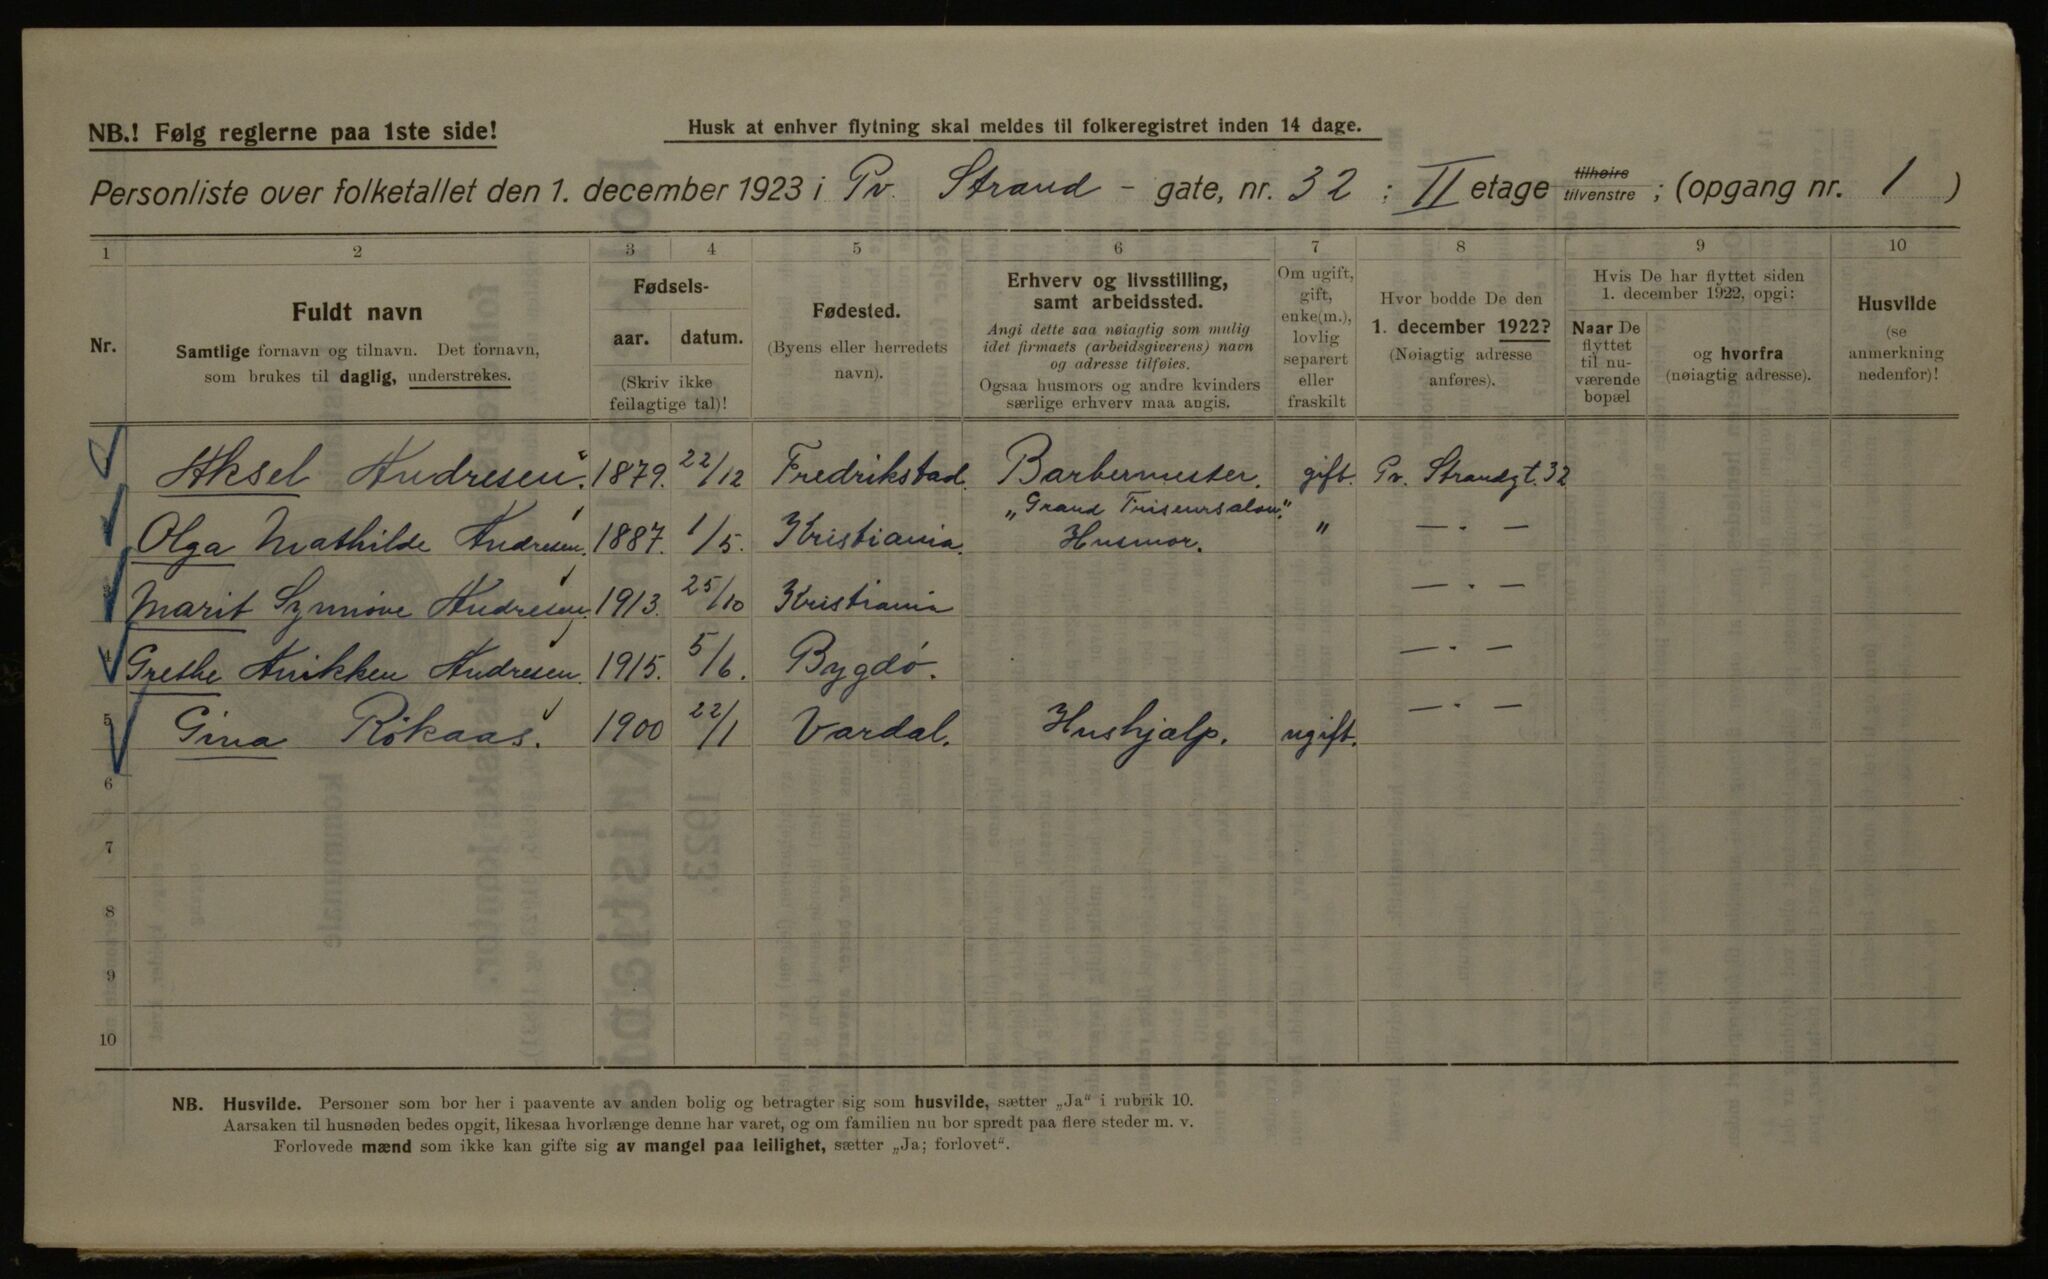 NB.! Følg reglerne paa 1ste side!
Husk at enhver flytning skal meldes til folkeregistret inden 14 dage.
Personliste over folketallet den 1. december 1923 i Pv. Strand - gate, nr. 32 : II etage tilhøire tilvenstre ; (opgang nr. 1 )
1 2 3 4 5 6 7 8 9 10
Nr.
Fuldt navn
Samtlige fornavn og tilnavn. Det fornavn,
som brukes til daglig, understrekes.
Fødsels-
aar. datum.
(Skriv ikke
feilagtige tal)!
Fødested.
(Byens eller herredets
navn).
Erhverv og livsstilling,
samt arbeidssted.
Angi dette saa nøiagtig som mulig
idet firmaets (arbeidsgiverens) navn
og adresse tilføies.
Ogsaa husmors og andre kvinders
særlige erhverv maa angis.
Om ugift,
gift,
enke(m.),
lovlig
separert
eller
fraskilt
Hvor bodde De den
1. december 1922?
(Nøiagtig adresse
anføres).
Hvis De har flyttet siden
1. december 1922, opgi:
Naar De
flyttet
til nu-
værende
bopæl
og hvorfra
(nøiagtig adresse).
Husvilde
(se
anmerkning
nedenfor)!
Aksel Andresen. 1879. 22/12 Fredrikstad. Barbermester. gift. Pv. Strandgt. 32
„Grand Friseursalon“.
Olga Mathilde Andresen. 1887. 1/5. Kristiania. Husmor. " — " —
Marit Synnöve Andresen. 1913. 25/10 Kristiania — " —
Grethe Annikken Andresen. 1915. 5/6. Bygdö. — " —
5 Gina Rökaas. 1900 22/1 Vardal. Hushjælp. ugift. — " —
6
7
8
9
10
NB. Husvilde. Personer som bor her i paavente av anden bolig og betragter sig som husvilde, sætter „Ja“ i rubrik 10.
Aarsaken til husnøden bedes opgit, likesaa hvorlænge denne har varet, og om familien nu bor spredt paa flere steder m. v.
Forlovede mænd som ikke kan gifte sig av mangel paa leilighet, sætter „Ja; forlovet“.